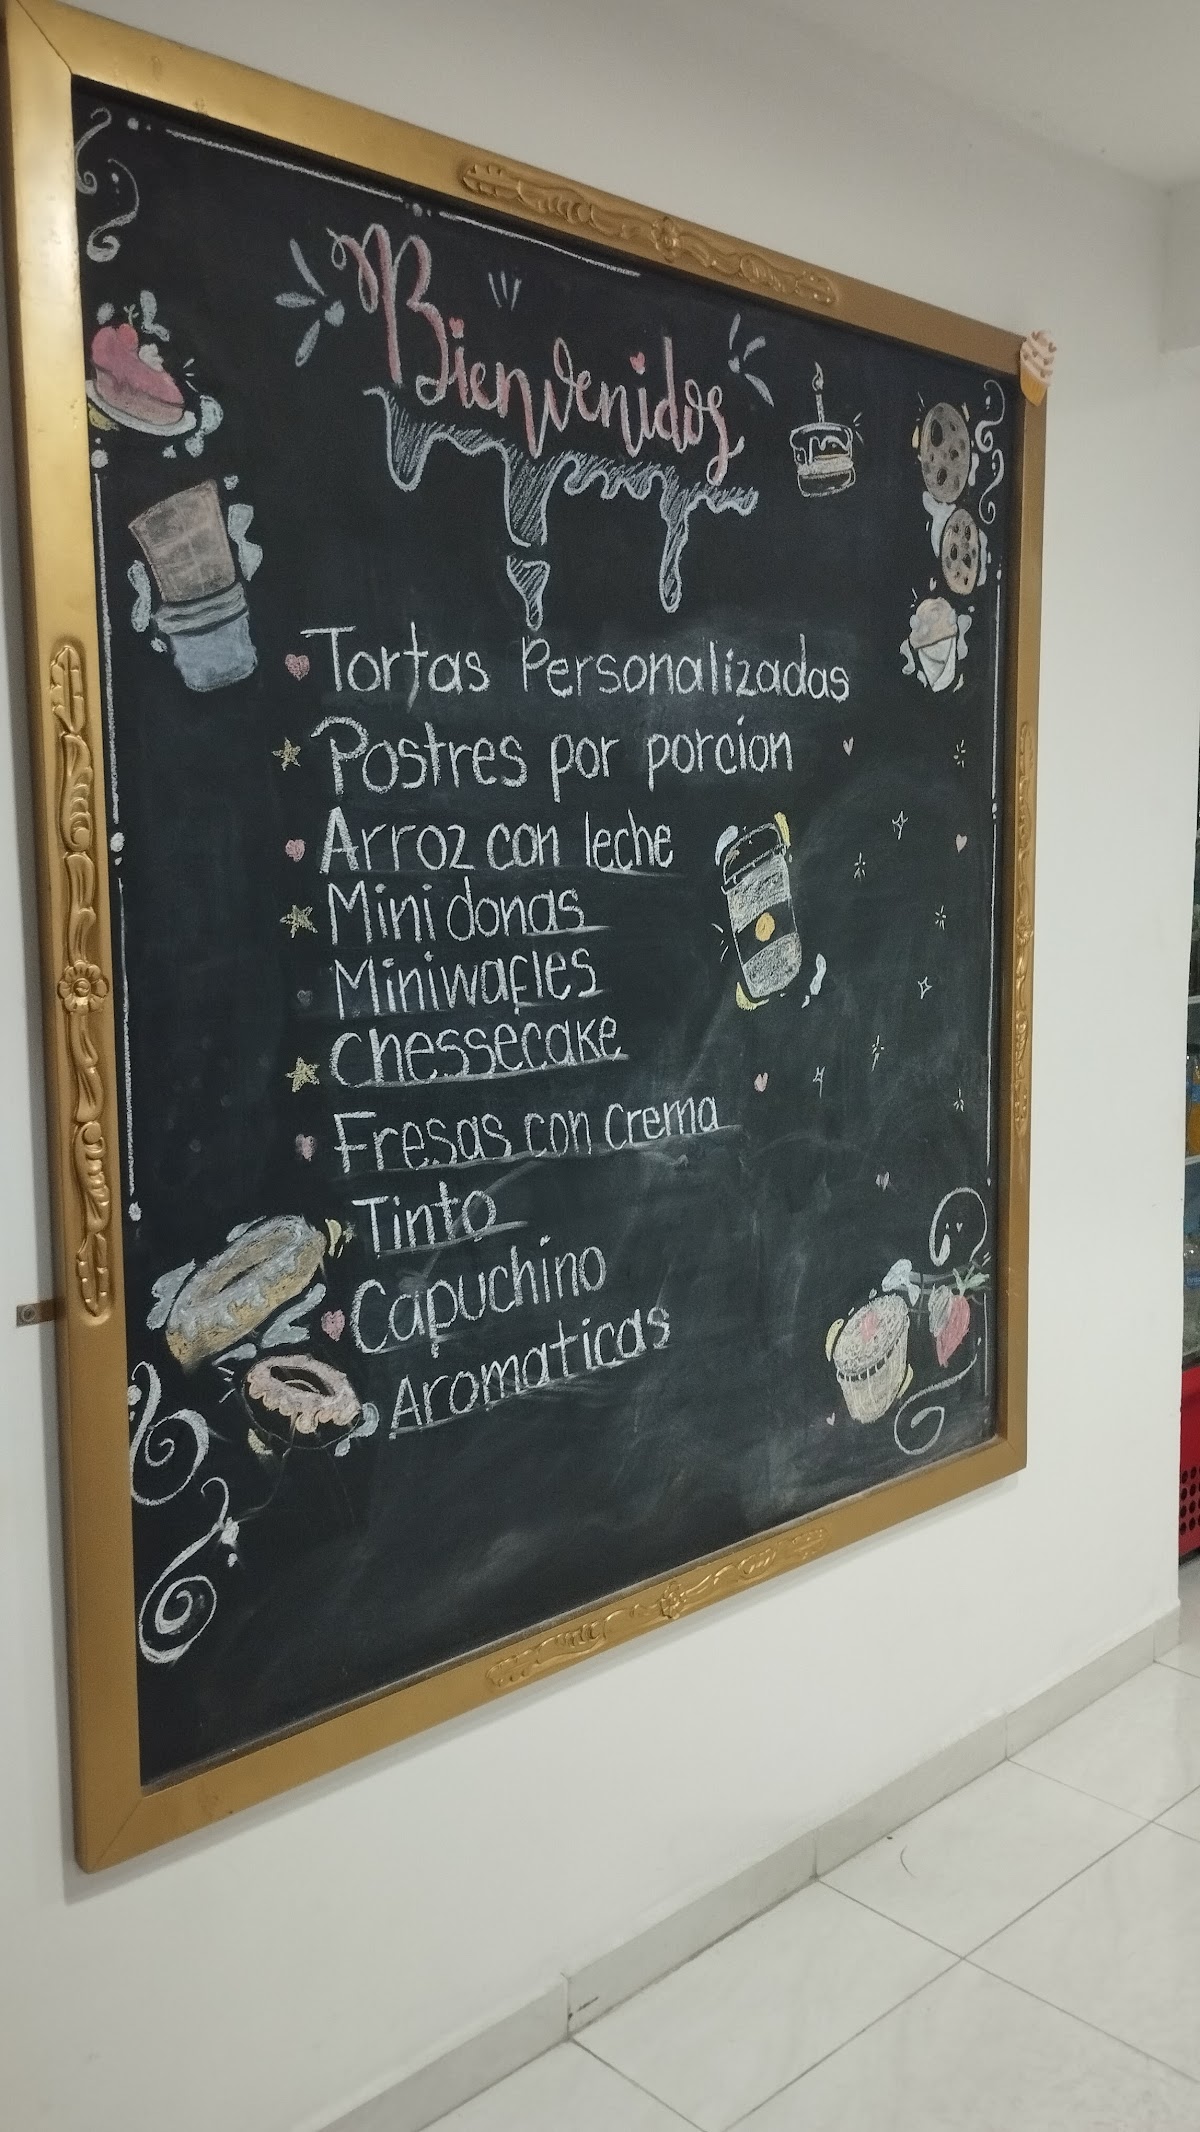 Bienvenidos
Tortas Personalizadas
Postres por porcion
Arroz con leche
Mini donas
Miniwafles
Chessecake
Fresas con crema
Tinto
Capuchino
Aromaticas